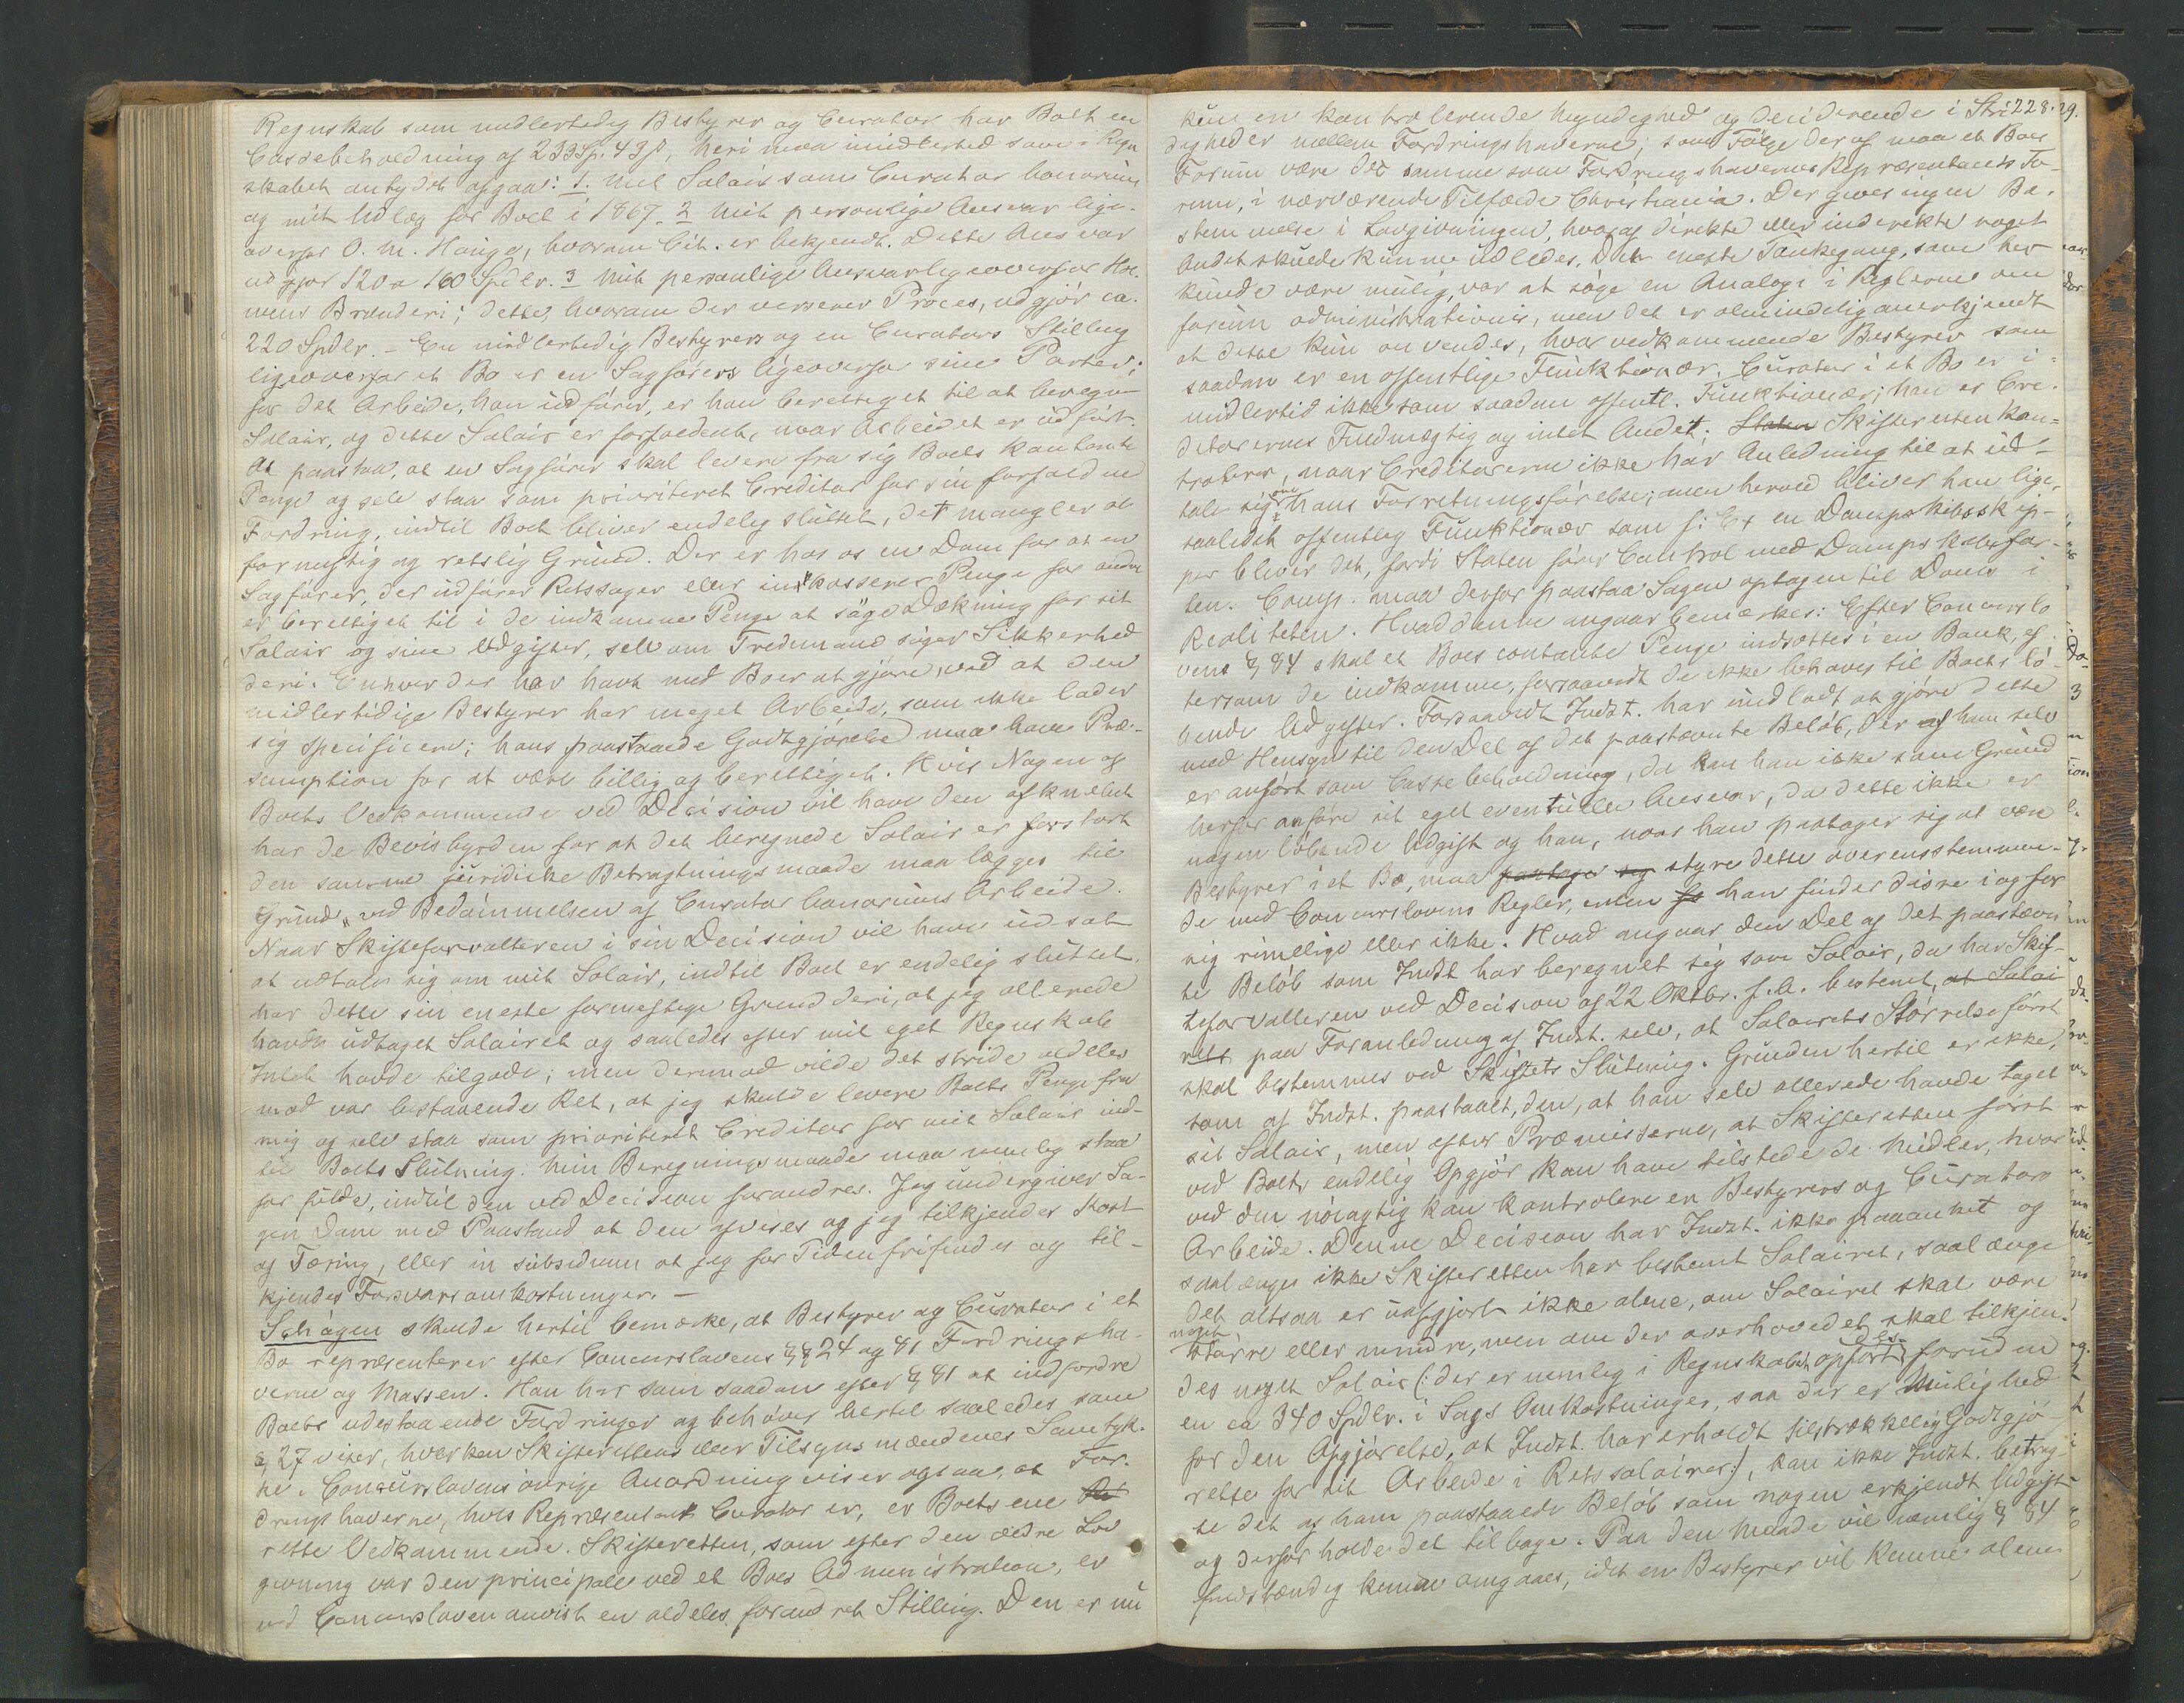 Regnskab som midlertidig Bestyrer og Curator har Boet en
Cassebeholdning af 233 Sp. 43 ß, heri maa imidlertid som i Regn
skabet antydet afgaa: 1. Mit Salair som Curator bonorum
og mit Udlæg for Boet i 1867. 2 Mit personlige Ansvar lige-
overfor O. M. Hauge, hvorom Cit. er bekjendt. Dette Ansvar
udgjør 120 a 160 Spdlr. 3 Mit personlige Ansvar ligeoverfor Hol-
mens Brænderi; dette, hvorom der verserer Proces, udgjør ca.
220 Spdlr. – En midlertidig Bestyrers og en Curators Stilling
ligeoverfor et Bo er en Sagførers ligeoverfor sine Parter;
for det Arbeide, han udfører, er han berettiget til at beregne
Salair, og dette Salair er forfaldent, naar Arbeidet er udført.
At paastaa, at en Sagfører skal levere fra sig Boets kontante
Penge og selv staa som prioriteret Creditor for sin forfaldne
Fordring, indtil Boet bliver endelig sluttet, det mangler al
fornuftig og retslig Grund. Der er hos os en Dom for at en
Sagfører, der udfører Retssager eller inkasserer Penge for andre
er berettiget til i de indkomne Penge at søge Dækning for sit
Salair og sine Udgifter, selv om Tredemand søger Sikkerhed
deri. Enhver der har havt med Boer at gjøre, ved at den
midlertidige Bestyrer har meget Arbeide, som ikke lader
sig specificere; hans paastaaede Godtgjørelse maa have Præ-
sumption for at være billig og berettiget. Hvis Nogen af
Boets Vedkommende ved Decision vil have den afknebet
har de Bevisbyrden for at det beregnede Salair er for stort
den samme juridiske Betragtningsmaade maa lægges til
Grund ved Bedømmelsen af Curator bonorums Arbeide.
Naar Skifteforvalteren i sin Decision vil have udsat
at udtale sig om mit Salair, indtil Boet er endelig sluttet,
har dette sin eneste fornuftige Grund deri, at jeg allerede
havde udtaget Salairet og saaledes efter mit eget Regnskab
Intet havde tilgode; men derimod vilde det stride aldeles
mod var bestaaende Ret, at jeg skulde levere Boets Penge fra
mig og selv staa som prioriteret Creditor for mit Salair ind-
til Boets Slutning. Min Beregningsmaade maa nemlig staa
for fulde, indtil den ved Decision forandres. Jeg undergiver Sa-
gen Dom med Paastand at den afvises og jeg tilkjendes Kost
og Tæring, eller in subsidium at jeg for Tiden frifindes og til-
kjendes Forsvarsomkostninger. –
Schagen skulde hertil bemærke, at Bestyrer og Curator i et
Bo repræsenterer efter Concurslovens §§ 24 og 81 Fordringsha-
verne og Massen. Han har som saadan efter § 81 at indfordre
Boets udestaaende Fordringer og behøver hertil saaledes som
§ 27 viser, hverken Skifterettens eller Tilsynsmændenes Samtyk-
ke. Concurslovens øvrige Anordning viser ogsaa, at For-
dringshaverne, hvis Repræsentant Curator er, er Boets ene Re
rette Vedkommende. Skifteretten, som efter den ældre Lov
givning var den principale ved et Boes Administration, er
ved Concursloven anvist en aldeles forandret Stilling. Den er nu
228.
kun en kontrolerende Myndighed og deciderende i Stri-
digheder mellem Fordringshaverne; som Følge deraf maa et Boes
Forum være det samme som Fordringshavernes Repræsentants Fo-
rum, i nærværende Tilfælde Christiania. Der gives ingen Be-
stemmelse i Lovgivningen, hvoraf direkte eller inderekte noget
Andet skulde kunne udledes. Den eneste Tankegang, som her
kunde være mulig, var at søge en Analogi i Reglerne om
forum administrationis, men det er almindelig anerkjendt
at dette kun anvendes, hvor vedkommende Bestyrer som
saadan er en offentlige Funktionær. Curator i et Bo er i-
midlertid ikke som saadan offentl. Funktionær; han er Cre-
ditorernes Fuldmægtig og intet Andet; Staten Skifteretten kon-
trolerer, naar Creditorerne ikke har Anledning til at ud-
tale sig om hans Forretningsførelse; men herved bliver han lige-
saalidet offentlig Funktionær som f. Ex en Dampskibsskip-
per bliver det, fordi Staten fører Control med Dampskibsfar-
ten. Comp. maa derfor paastaa Sagen optagen til Doms i
Realiteten. Hvad denne angaar bemærkes: Efter Concurslo
vens § 84 skal et Boes contante Penge indsættes i en Bank, ef-
tersom de indkomme, forsaavidt de ikke behøves til Boets lø-
bende Udgifter. Forsaavidt Indst. har undladt at gjøre dette
med Hensyn til den Del af det paastævnte Beløb, der af ham selv
er anført som Cassebeholdning, da kan han ikke som Grund
herfor anføre sit eget eventuelle Ansvar, da dette ikke er
nogen løbende Udgift og han, naar han paatager sig at være
Bestyrer i et Bo, maa paatage sig styre dette overensstemmen-
de med Concurslovens Regler, enten fo han finder disse i og for
sig rimelige eller ikke. Hvad angaar den Del af det paastævn
te Beløb som Indst har beregnet sig som Salair, da har Skif-
teforvalteren ved Decision af 22 Oktbr. f. A. bestemt, at Salai
rets paa Foranledning af Indst. selv, at Salairets Størrelse først
skal bestemmes ved Skiftets Slutning. Grunden hertil er ikke,
som af Indst. paastaaet, den, at han selv allerede havde taget
sit Salair, men efter Præmisserne, at Skifteretten først
ved Boets endelig Opgjør kan have tilstede de Midler, hvor
ved den nøiagtig kan kontrolere en Bestyrers og Curators
Arbeide. Denne Decision har Indst. ikke paaanket og
saalænge ikke Skifteretten har bestemt Salairet, saalænge
det altsaa er uafgjort ikke alene, om Salairet skal være
noget
større eller mindre, men om der overhovedet skal tilkjen-
des noget Salair (: der er nemlig i Regnskabet opført des foruden
en ca 340 Spdlr. i Sags Omkostninger, saa der er Mulighed
for den Afgjørelse, at Indst. har erholdt tilstrækkelig Godtgjø-
relse for sit Arbeide i Retssalairer:), kan ikke Indst. betrag-
te det af ham paastaaede Beløb som nogen erkjendt Udgift
og derfor holde det tilbage. Paa den Maade vil nemlig § 84
fuldstændig kunne omgaaes, idet en Bestyrer vil kunne alene